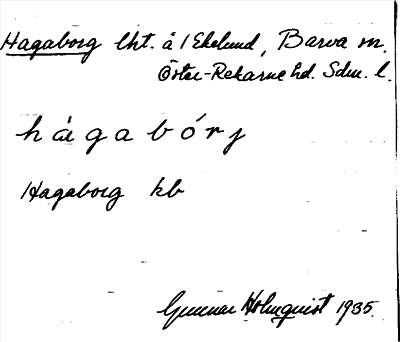 Hagaborg lht. å 1 Ekelund, Barva sn.
Öster-Rekarne hd. Sdm. l.
hágabórj
Hagaborg kb
Gunnar Holmquist 1935.